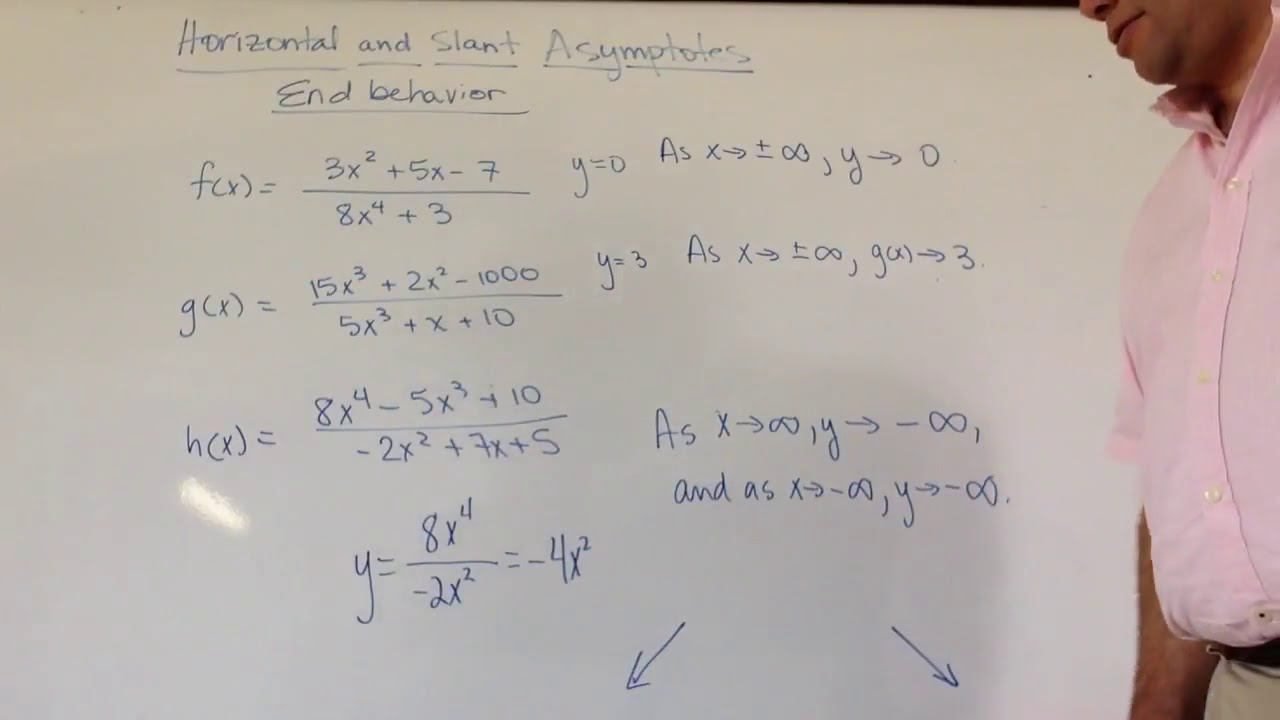 Horizontal and Slant Asymptotes
End behavior
f(x) = (3x² + 5x - 7)/(8x⁴ + 3) y=0 As x→±∞, y→ 0.
g(x) = (15x³ + 2x² - 1000)/(5x³ + x + 10) y=3 As x→±∞, g(x)→3.
h(x) = (8x⁴ - 5x³ + 10)/(-2x² + 7x + 5) As x→∞, y→ -∞,
and as x→-∞, y→-∞.
y = 8x⁴/(-2x²) = -4x²